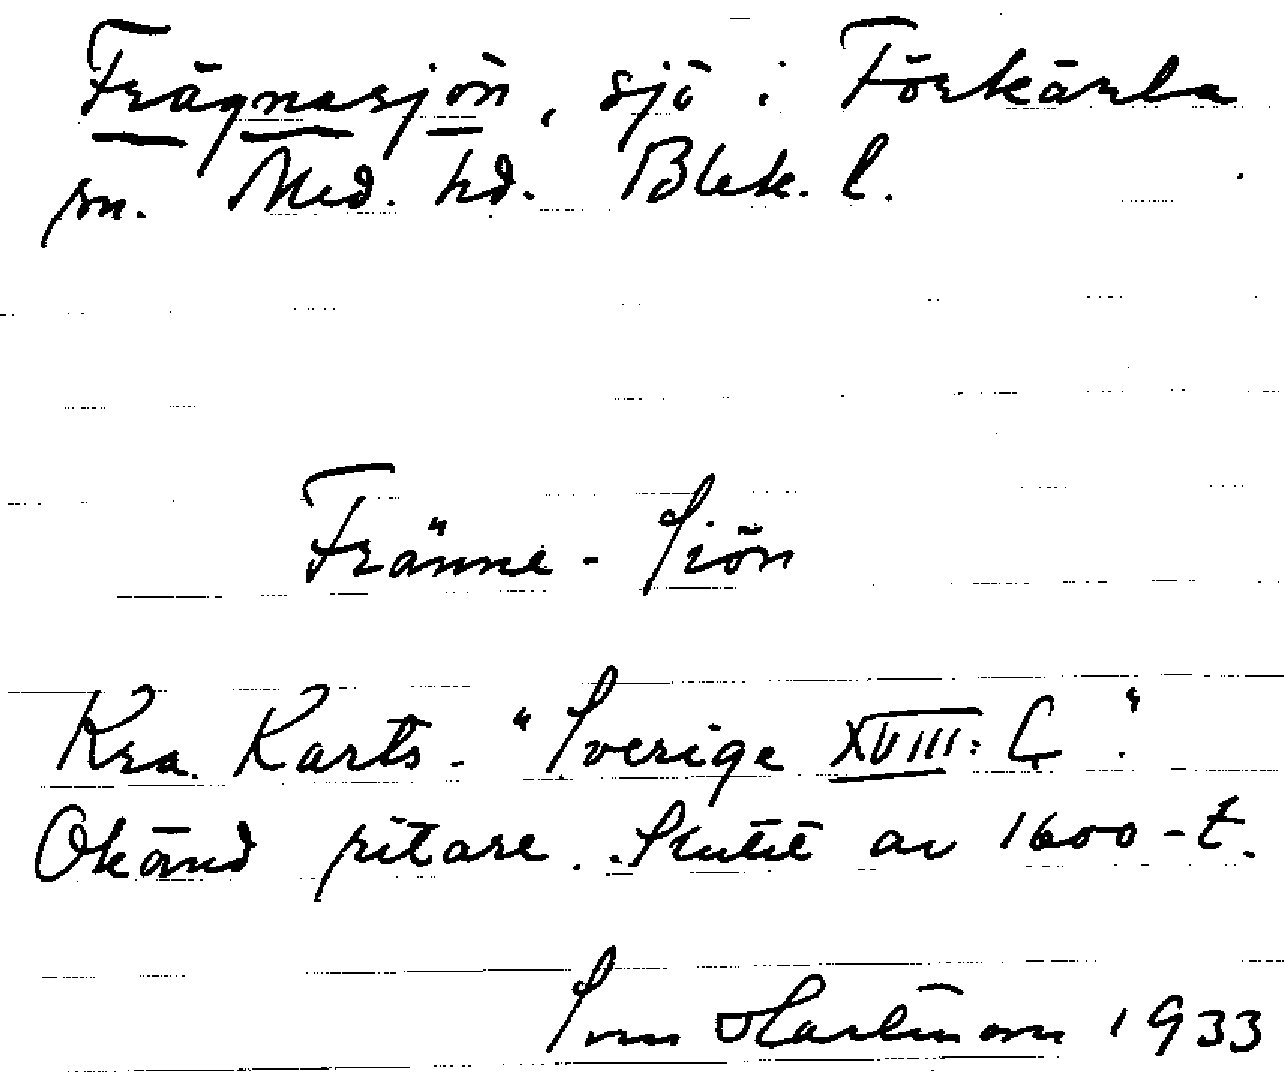 Frägnasjön, sjö i Förkärla
sn. Med. hd. Blek. l.
Fränne-Siön
Kra. Karts. "Sverige XVIII: C".
Okänd ritare. Slutet av 1600-t.
Sven Hartman 1933